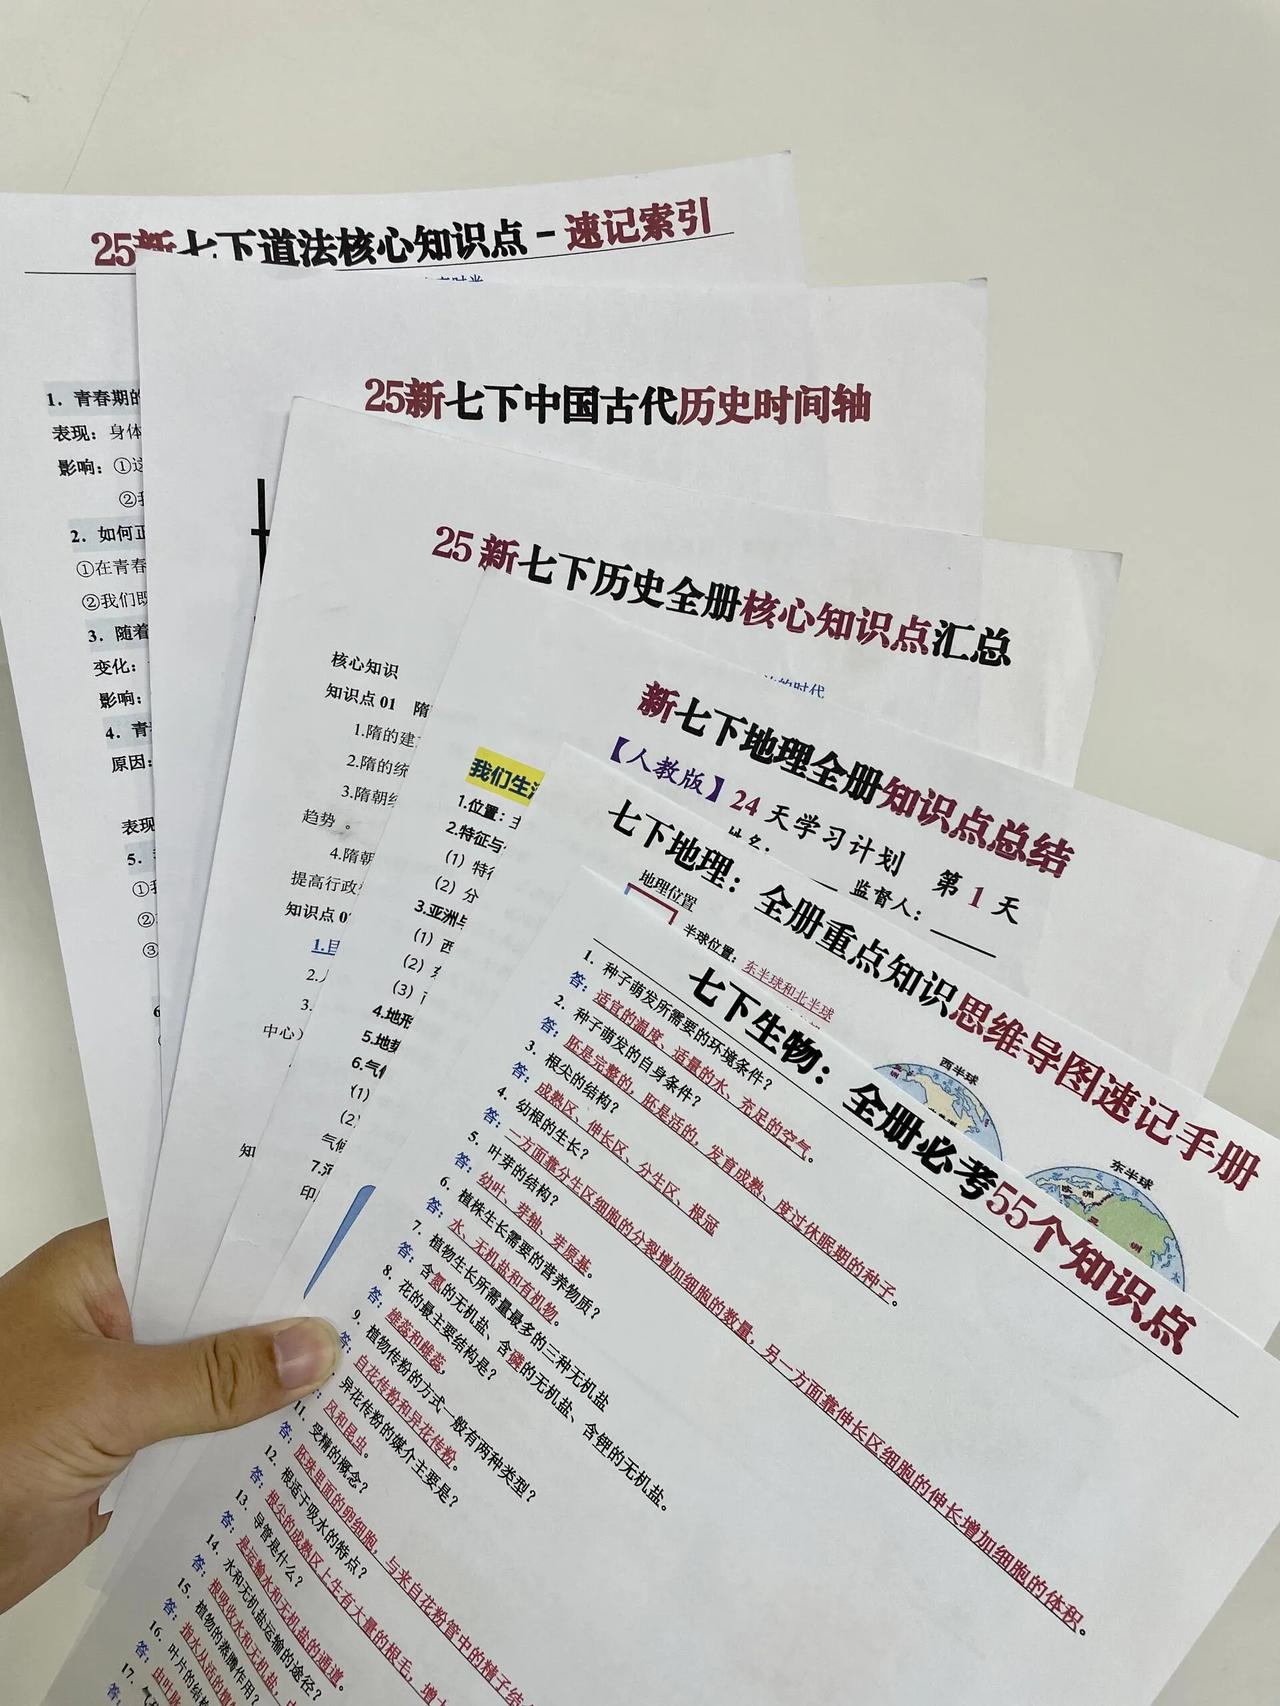 25新七下道法核心知识点－速记索引
1. 青春期的
表现：身体
影响：①这
②我
2. 如何正
①在青春
②我们既
3. 随着
变化：
影响：
4. 青
原因：
表现
5.
①我
②
③
25新七下中国古代历史时间轴
25 新七下历史全册核心知识点汇总
核心知识
知识点 01 隋
1.隋的建
2.隋的统
3.隋朝经
趋势 。
4.隋朝
提高行政
知识点 0
1.目
2.
3.
中心）
知
新七下地理全册知识点总结
我们生活
1.位置：主
2.特征与
（1）特征
（2）分
3.亚洲与
（1）西
（2）东
（3）
4.地形
5.地势
6.气候
（1）
（2）
气候
7.河
印
【人教版】24 天学习计划 第 1 天
姓名： 监督人：
七下地理：全册重点知识思维导图速记手册
地理位置
半球位置：东半球和北半球
西半球
东半球
七下生物：全册必考55个知识点
1. 种子萌发所需要的环境条件？
答：适宜的温度、适量的水、充足的空气。
2. 种子萌发的自身条件？
答：胚是完整的，胚是活的，发育成熟、度过休眠期的种子。
3. 根尖的结构？
答：成熟区、伸长区、分生区、根冠
4. 幼根的生长？
答：一方面靠分生区细胞的分裂增加细胞的数量，另一方面靠伸长区细胞的伸长增加细胞的体积。
5. 叶芽的结构？
答：幼叶、芽轴、芽原基。
6. 植株生长需要的营养物质？
答：水、无机盐和有机物。
7. 植物生长所需量最多的三种无机盐
答：含氮的无机盐、含磷的无机盐、含钾的无机盐。
8. 花的最主要结构是？
答：雄蕊和雌蕊，
9. 植物传粉的方式一般有两种类型？
答：自花传粉和异花传粉。
异花传粉的媒介主要是？
：风和昆虫。
11. 受精的概念？
答：胚珠里面的卵细胞，与来自花粉管中的精子结合
12. 根适于吸水的特点？
答：根尖的成熟区上生有大量的根毛，增大
13. 导管是什么？
答：是运输水和无机盐的通道。
14. 水和无机盐运输的途径？
答：根吸收水和无机盐，
15. 植物的蒸腾作用？
答：指水从活的植
16. 叶片的结构
答：由叶脉
17. 气
答：